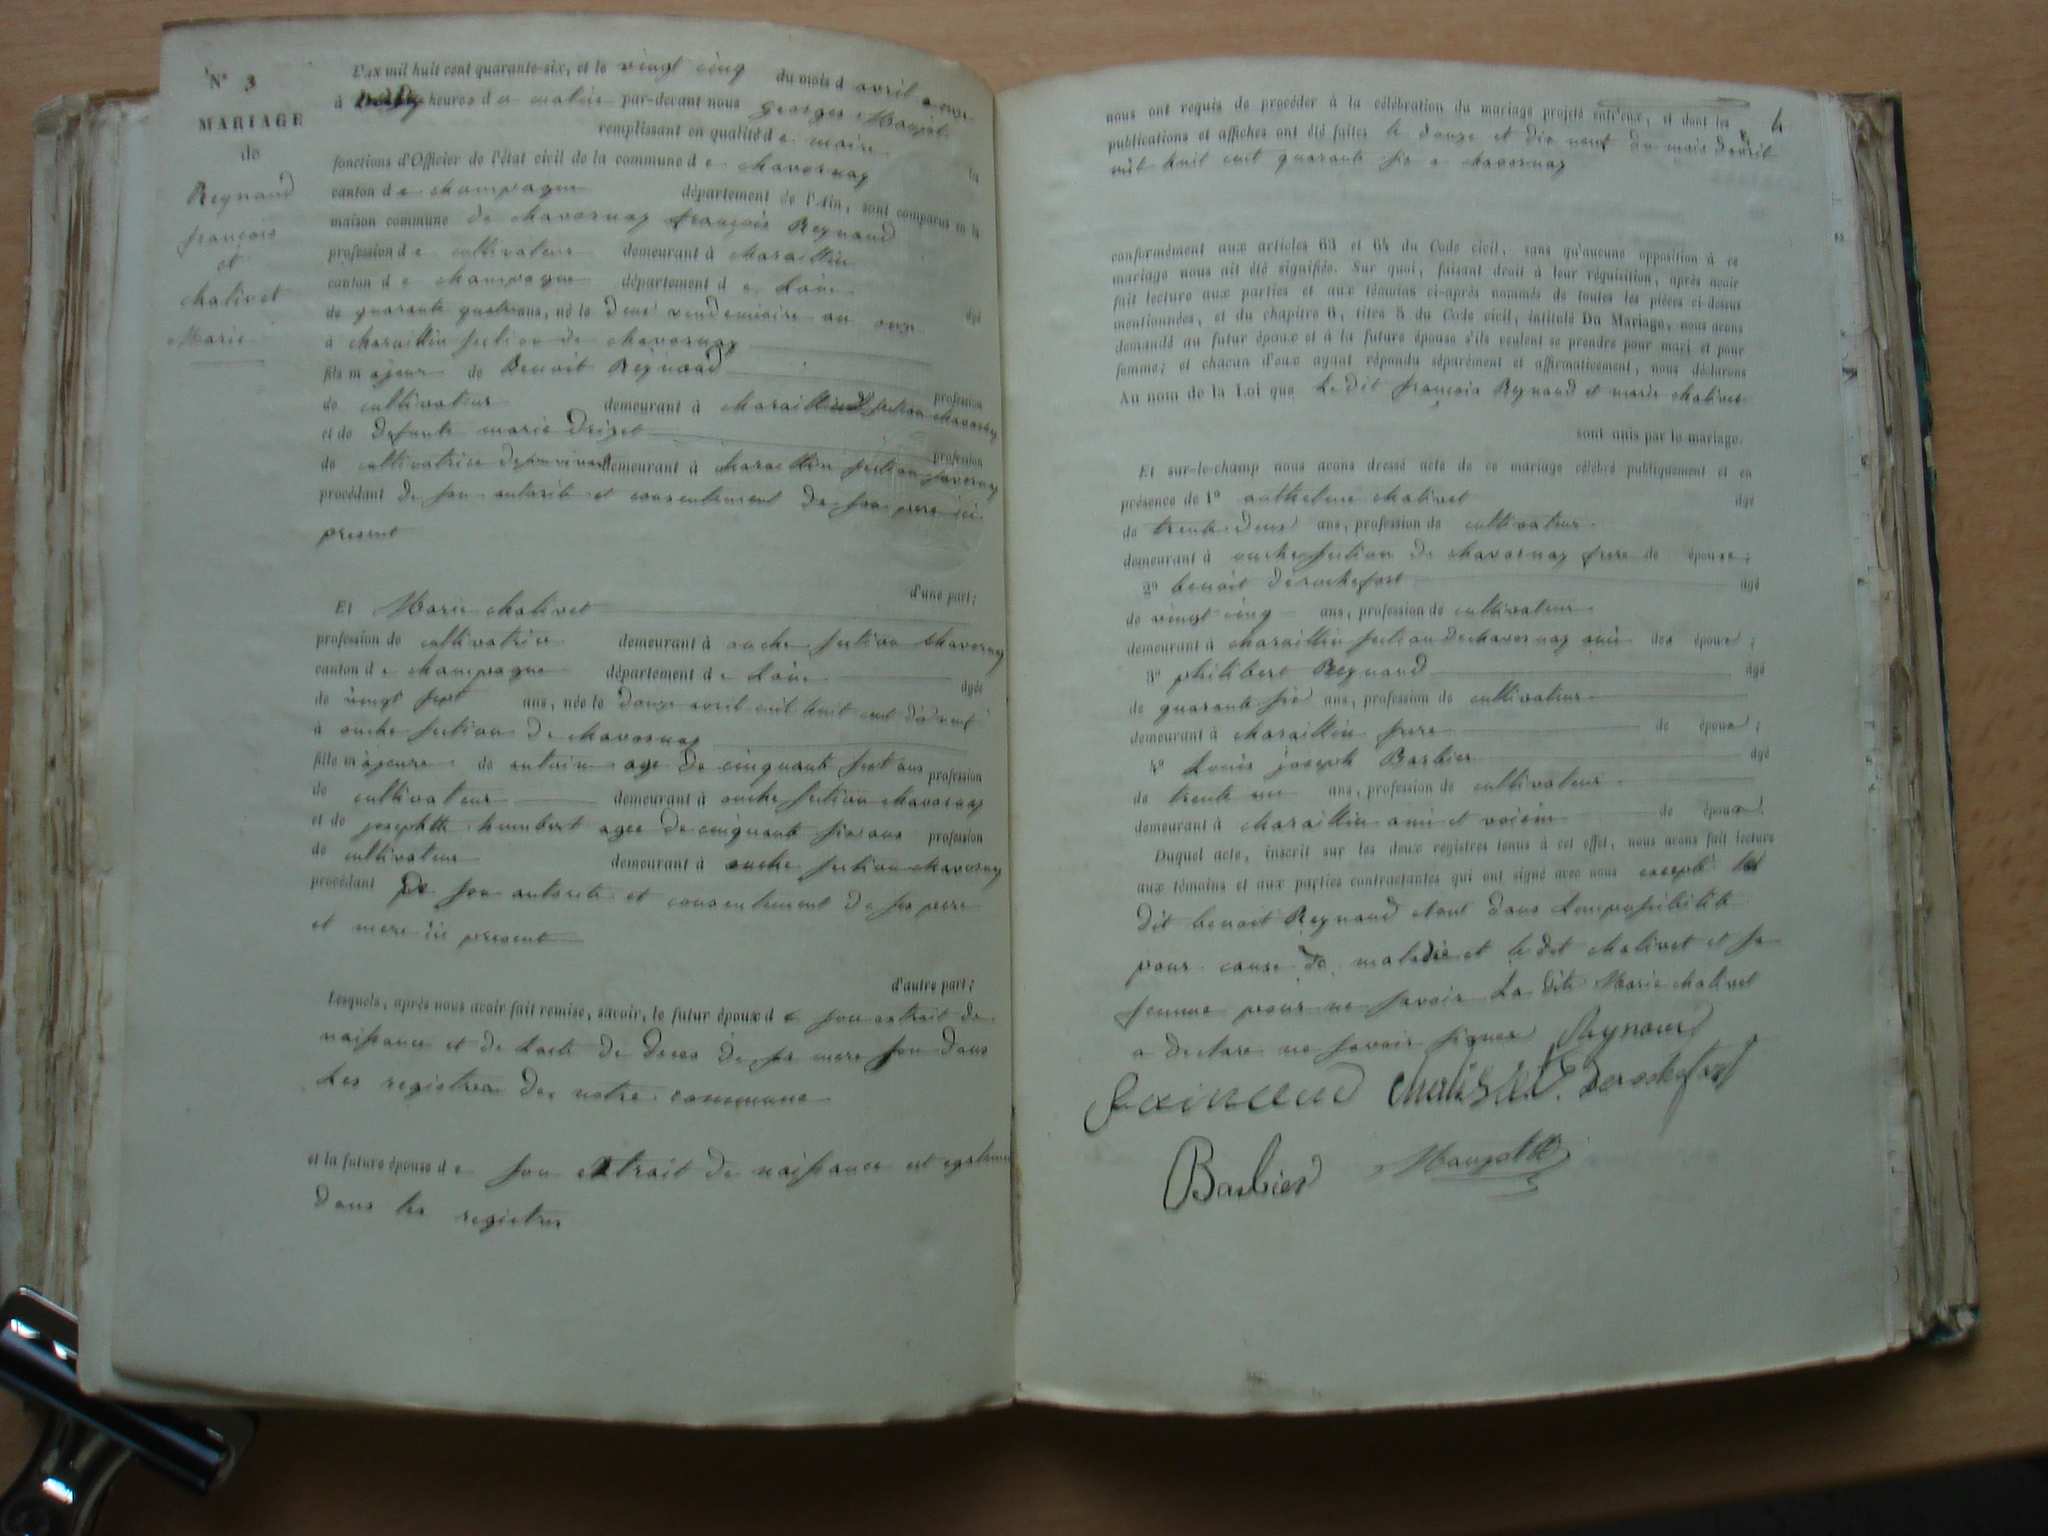 N° 3
MARIAGE
de
Reynaud
françois
et
chalivet
Marie
L'an mil huit cent quarante-six, et le vingt cinq du mois d avril a onze
à heures d u matin par-devant nous georges Maujot
remplissant en qualité d e maire les
fonctions d'Officier de l'état civil de la commune d e chavornay
canton d e champagne département de l'Ain, sont comparus en la
maison commune de chavornay françois Reynaud
profession d e cultivateur demeurant à charaillin
canton d e champagne département d e Lain âgé
de quarante quatre ans, né le deux vendemiaire an onze
à charaillin section de chavornay
fils majeur de Benoit Reynaud profession
de cultivateur demeurant à charaillin section chavornay
et de defunte marie drizet profession
de cultivatrice demeurant à charaillin section
procédant de son autorite et consentement de son pere ici
present
d'une part;
Et Marie chalivet
profession de cultivatrice demeurant à ouche section chavornay
canton d e champagne département d e Lain âgée
de vingt sept ans, née le douze avril mil huit cent dix neuf
à ouche section de chavornay
fille majeure de antoine age de cinquante sept ans profession
de cultivateur demeurant à ouche section chavornay
et de josephte humbert agee de cinquante six ans profession
de cultivateur demeurant à ouche section chavornay
procédant de son autorite et consentement de ses pere
et mere ici present
d'autre part;
Lesquels, après nous avoir fait remise, savoir, le futur époux d e son extrait de
naissance et de Lacte de deces de sa mere son dans
Les registres de notre commune
et la future épouse d e son extrait de naissance est egalement
dans les registres
4
nous ont requis de procéder à la célébration du mariage projeté entr'eux, et dont les
publications et affiches ont été faites le douze et dix neuf du mois davril
mil huit cent quarante six a chavornay
conformément aux articles 63 et 64 du Code civil, sans qu'aucune opposition à ce
mariage nous ait été signifiée. Sur quoi, faisant droit à leur réquisition, après avoir
fait lecture aux parties et aux témoins ci-après nommés de toutes les pièces ci-dessus
mentionnées, et du chapitre 6, titre 5 du Code civil, intitulé Du Mariage, nous avons
demandé au futur époux et à la future épouse s'ils veulent se prendre pour mari et pour
femme; et chacun d'eux ayant répondu séparément et affirmativement, nous déclarons
Au nom de la Loi que Le dit françois Reynaud et marie chalivet
sont unis par le mariage.
Et sur-le-champ nous avons dressé acte de ce mariage célébré publiquement et en
présence de 1° anthelme chalivet âgé
de trente deux ans, profession de cultivateur
demeurant à ouche section de chavornay frere de épouse;
2° benoit derochefort âgé
de vingt cinq ans, profession de cultivateur
demeurant à charaillin section de chavornay ami des époux;
3° philibert Reynaud âgé
de quarante six ans, profession de cultivateur
demeurant à charaillin frere de époux;
4° Louis joseph Barbier âgé
de trente un ans, profession de cultivateur
demeurant à charaillin ami et voisin de époux.
Duquel acte, inscrit sur les deux registres tenus à cet effet, nous avons fait lecture
aux témoins et aux parties contractantes qui ont signé avec nous excepté le
dit benoit Reynaud etant dans Limpossibilité
pour cause de maladie et le dit chalivet et sa
femme pour ne savoir La dite Marie chalivet
a declare ne savoir signer Reynaud
Rainaud chalivet derochefort
Barbier Maujot